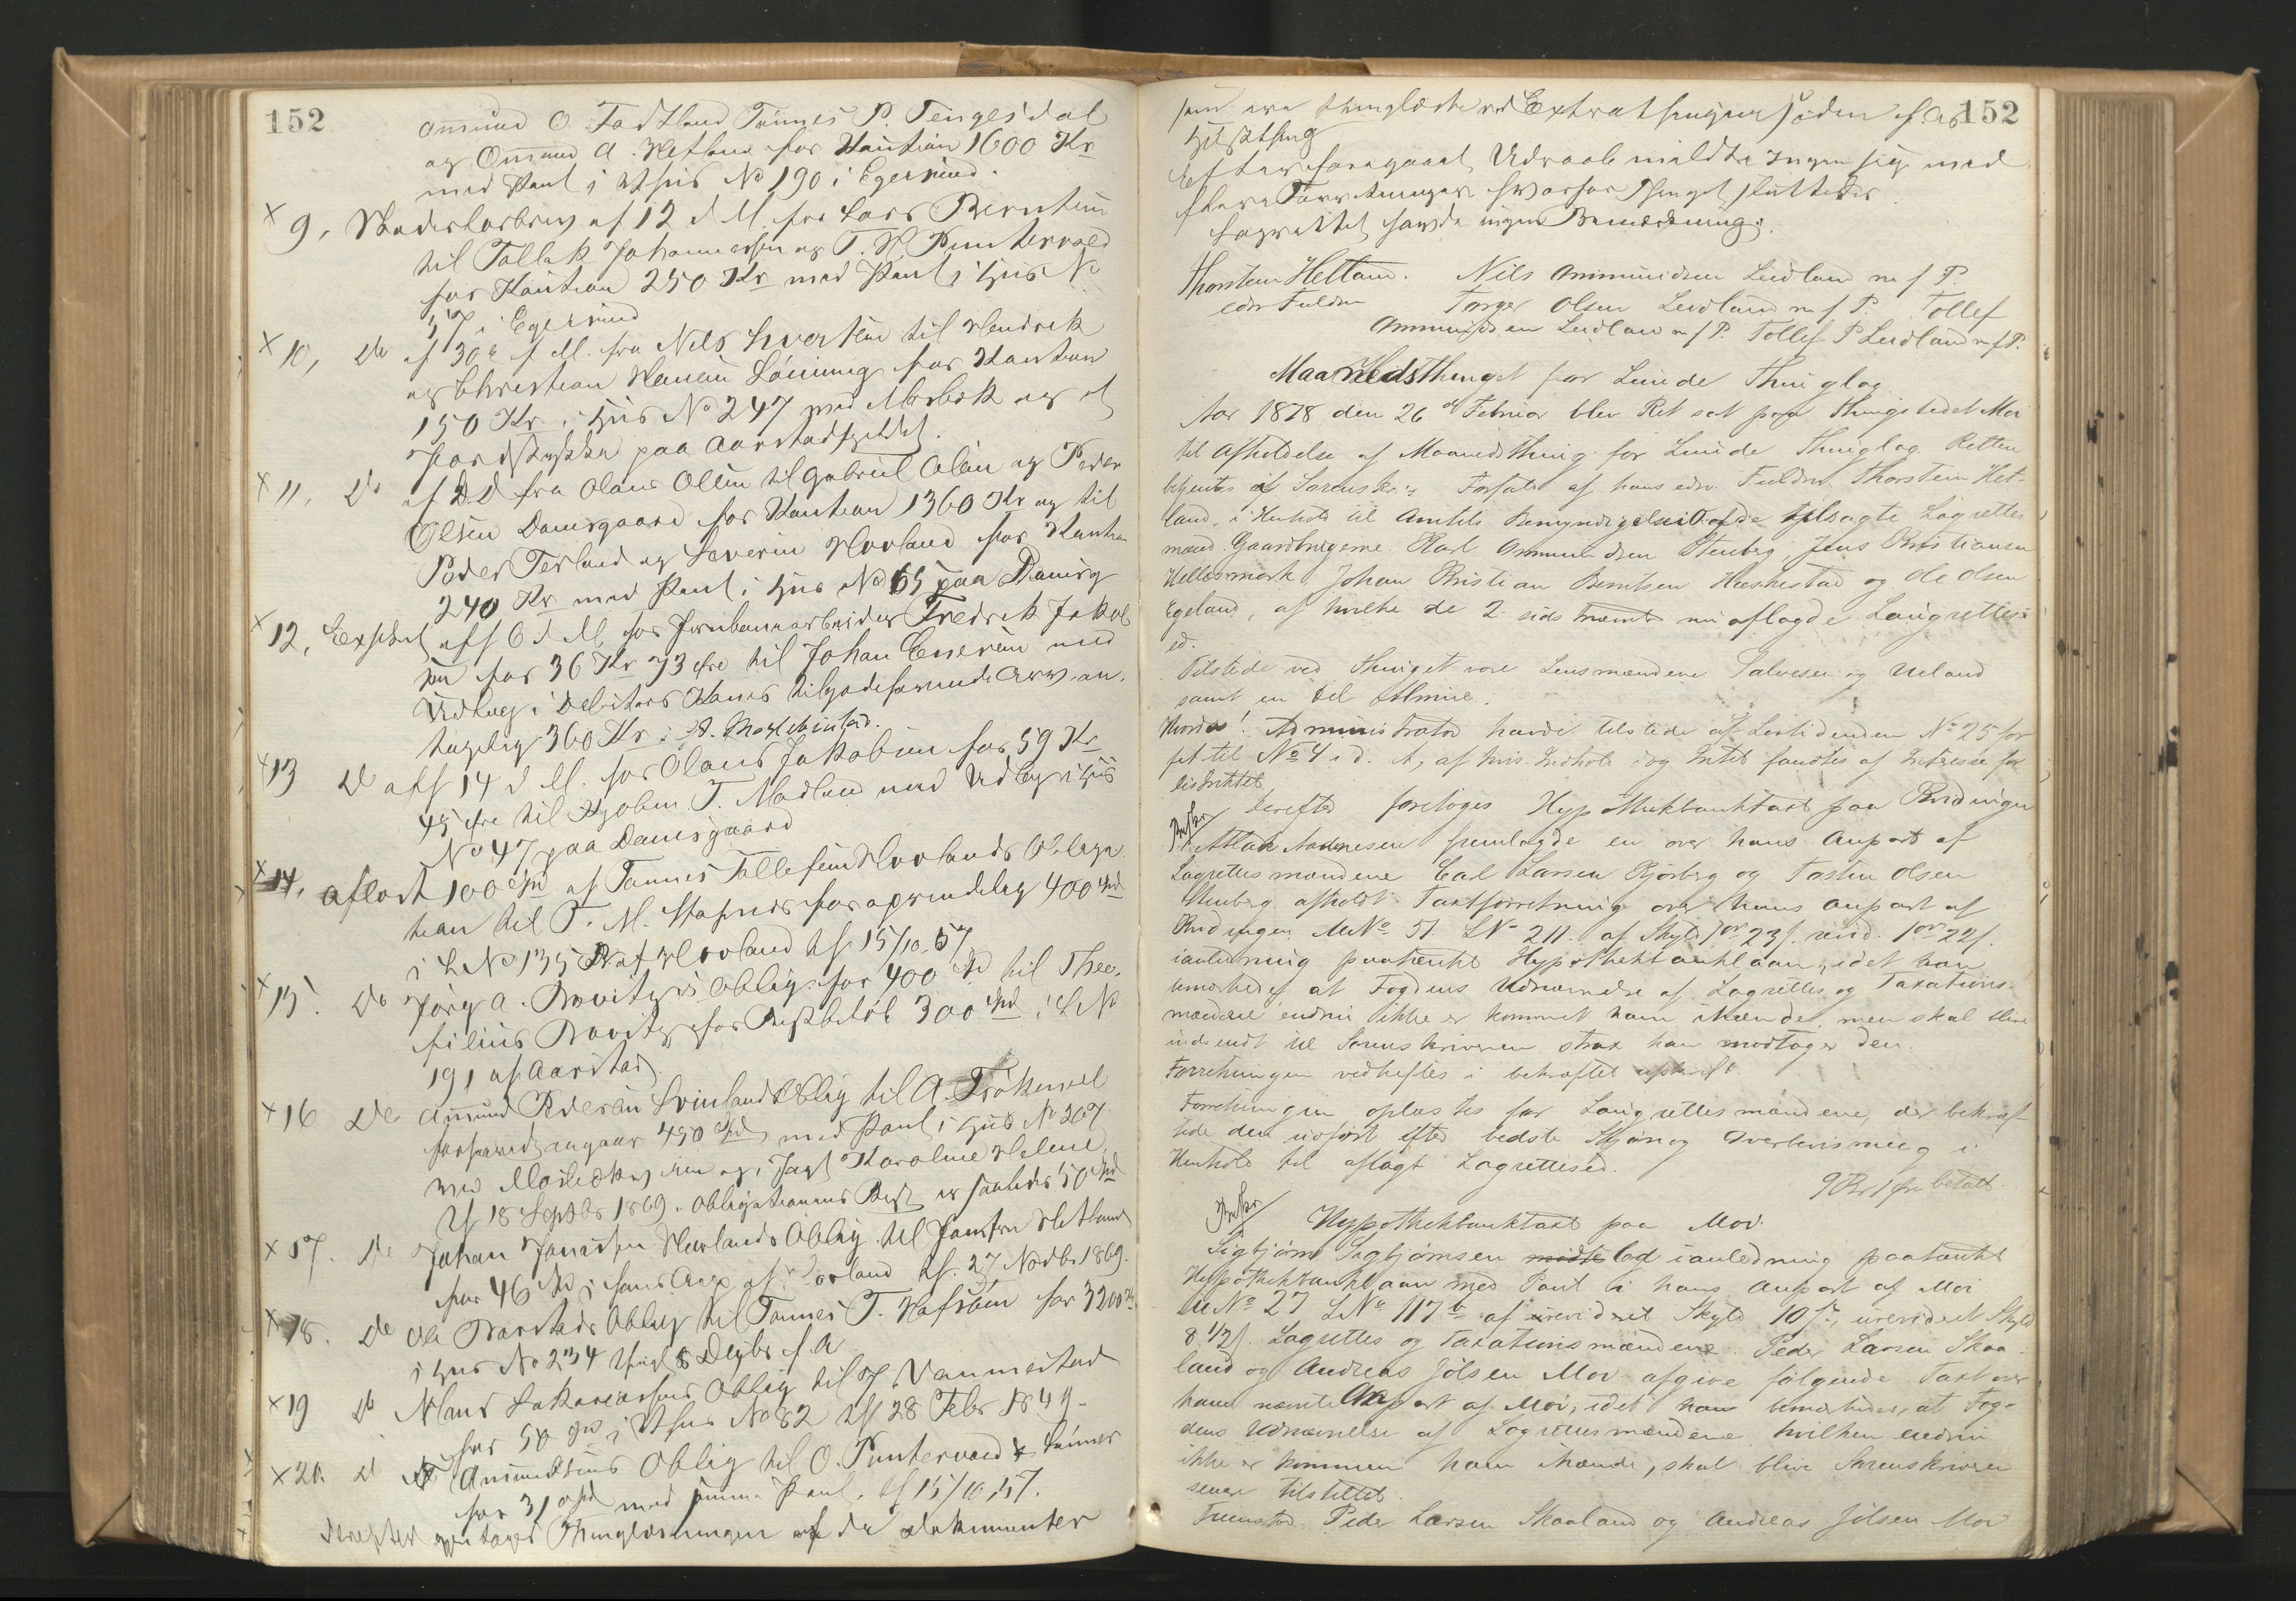 152
Ommund O. Tadtland Tønnes P. Tengesdal
og Ommund A. Hetland for Kaution 1600 Kr
med Pant i Huus No 190 i Egersund.
x 9, Skadesløsbrev af 12 d M. fra Lars Berntsen
til Tollak Johannessen og T. H. Puntervold
for Kaution 250 Kr med Pant i Huus No
57 i Egersund
x 10, Do af 30 f M. fra Nils Sivertsen til Hendrik
og Christian Hansen Løining for Kaution
150 Kr i Huus No 247 ved Mosbæk og et
Jordstykke paa Aarstadfjeldet.
x 11. Do af D.D fra Olaus Olsen til Gabriel Olsen og Peder
Olsen Damsgaard for Kaution 1360 Kr og til
Peder Terland og Severin Hovland for Kaution
240 Kr med Pant i Huus No 65 paa Damsg
x 12, Expl af 6 d M. for Jernbanearbeider Fredrik Jakob
sen for 36 Kr 73 Øre til Johan Enersen med
Udlæg i Debitors Kones tilgodehavende Arv an-
tagelig 360 Kr i A. Møglebustad.
x 13 Do af 14 d M. for Olaus Jakobsen for 59 Kr
45 Øre til Kjøbm. T. Madland med Udlæg i Huus
No 47 paa Damsgaard
x 14. Aflæst 100 Spd af Tønnes Tollefsen Hovlands Obliga
tion til T. M. Stapnes for oprindelig 400 Spd
i L No 135 af Hovland tgl 15/10 57
x 15. Do Jørg A. Bovitz's Oblig. for 400 Spd til Theo-
filius Bovitz for Restbeløb 300 Spd i L No
191 af Aarstad.
x 16 Do Amund Pedersen Svinlands Oblig til A. Frøkenvel
450 Spd med Pant i Huus No 207
ved og i Jagt Karoline Helene
tgl 18 Septbr 1869. Obligationens Rest er saaledes 50 Spd
x 17. Do Johan Jonassen Hovlands Oblig. til Jomfru Hetland
for 46 Spd i hans Anp af Hovland tgl. 27 Novbr 1869.
x 18. Do Ole Barstads Oblig til Tønnes T. Hafsøen for 3200
i Huus No 234 tingl 8 Decbr f. A
x 19 Do Hans Zakariassens Oblig til J. Vanmestad
for 50 Spd i Huus No 82 tgl 28 Febr 1849.
x 20. Do Amundsens Oblig til O. Puntervold & Sønner
for 31 Spd med samme Pant, tgl 15/10 57.
Derefter Thinglæsningen af de Dokumenter
152
som ere thinglæste ved Extrathingene siden f. Aars
Høstthing
Efter foregaaet Udraab meldte Ingen sig med
flere Forretninger hvorfor Thinget sluttedes.
Lagrettet havde ingen Bemærkning.
Thorstein Hetland. Nils Ommundsen Leidland m f P.
edsv Fuldm Torger Olsen Leidland m f P. Tollef
Ommundsen Leidland m f P. Tollef P Leidland m f P.
Maanedsthinget for Lunde Thinglag
Aar 1878 den 26de Februar blev Ret sat paa Thingstedet Moi
til Afholdelse af Maanedsthing for Lunde Thinglag. Retten
betjentes i Sorenskr's Forfald af hans edsv. Fuldm. Thorstein Het-
land, i Henhold til Amtets Bemyndigelse af de tilsagte Lagrettes
mænd Gaardbrugerne Karl Ommundsen Stenberg, Jens Kristiansen
Hellesmark, Johan Kristian Berntsen Haskestad og Ole Olsen
Egeland, af hvilke de 2 sidstnævnte nu aflagde Laugrettes-
ed.
Tilstede ved Thinget vare Lensmændene Salvesen og Ueland
samt en Del Almue.
Hvorda! Administrator havde tilstede af Lovtidenden No 25 for
f A til No 4 i d. A, af hvis Indhold dog Intet fandtes af Interesse for
Distriktet.
Derefter foretoges Hypothekbanktaxt paa Rudningen
Atlak Aanesen fremlagde en over hans Anpart af
Lagrettesmændene Carl Larsen Bjørberg og Tostin Olsen
Stenberg afholdt Taxtforretning over hans Anpart af
Rudningen MNo 51 LNo 211 af Skyld 1 Ort 23 s. revid. 1 Ort 22 s.
i anledning paatænkt Hypothekbanklaan, idet han
bemærkede at Fogdens Udnævnelse af Lagrettes og Taxations-
mændene endnu ikke er kommet ham ihænde, men skal blive
indsendt til Sorenskriveren strax han modtager den.
Forretningen vedheftes i bekræftet afskrift.
Forretningen oplæstes for Laugrettesmændene, der bekræf
tede den udført efter bedste Skjøn og Overbevisning i
Henhold til aflagt Lagrettesed.
9 Kr 1 Øre betalt.
Hypothekbanktaxt paa Moi.
Sigbjørn Sigbjørnsen lod i anledning paatænkt
Hypothekbanklaan med Pant i hans Anpart af Moi
MNo 27 LNo 117b af revideret Skyld 10 s., urevideret Skyld
8 1/2 s. Lagrettes og Taxationsmændene Peder Larsen Skaa-
land og Andreas Jølsen Moi afgive følgende Taxt over
hans nævnte Anpart af Moi, idet han bemærkede, at Fog-
dens Udnævnelse af Lagrettesmændene hvilken endnu
ikke er kommen ham ihænde, skal blive Sorenskriveren
senere tilstillet.
Fremstod Peder Larsen Skaaland og Andreas Jølsen Moi